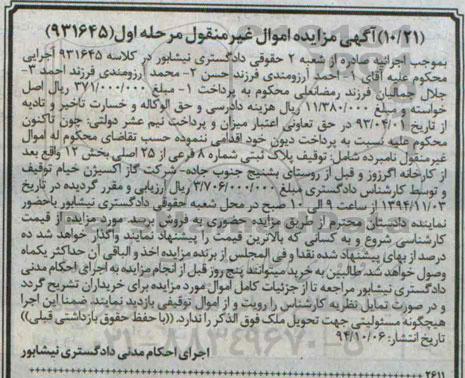 (۱۰/۲۱) آگهی مزایده اموال غیر منقول مرحله اول (۹۳۱۶۴۵)
بموجب اجرائیه صادره از شعبه ۲ حقوقی دادگستری نیشابور در کلاسه ۹۳۱۶۴۵ اجرایی
محکوم علیه آقای ۱- احمد آرزومندی فرزند حسن ۲- محمد آرزومندی فرزند احمد ۳-
جلال جمالیان فرزند رمضانعلی محکوم به پرداخت ۱- مبلغ ۳۷۱/۰۰۰/۰۰۰ ریال اصل
خواسته و مبلغ ۱۱/۳۸۰/۰۰۰ ریال هزینه دادرسی و حق الوکاله و خسارت تاخیر و تادیه
از تاریخ ۹۳/۰۴/۰۱ در حق تعاونی اعتبار میزان و پرداخت نیم عشر دولتی؛ چون تاکنون
محکوم علیه نسبت به پرداخت دیون خود اقدامی ننموده حسب تقاضای محکوم له اموال
غیر منقول نامبرده شامل: توقیف پلاک ثبتی شماره ۸ فرعی از ۲۵ اصلی بخش ۱۲ واقع بعد
از کارخانه اگرزوز و قبل از روستای بشنیج جنوب جاده- شرکت گاز اکسیژن خیام توقیف
و توسط کارشناس دادگستری بمبلغ ۳/۷۰۶/۰۰۰/۰۰۰ ریال ارزیابی و مقرر گردیده در تاریخ
۱۳۹۴/۱۱/۰۳ از ساعت ۹ الی ۱۰ صبح در محل شعبه حقوقی دادگستری نیشابور باحضور
نماینده دادستان محترم از طریق مزایده حضوری به فروش برسد. مورد مزایده از قیمت
کارشناسی شروع و به کسانی که بالاترین قیمت را پیشنهاد نمایند واگذار خواهد شد ده
درصد از بهای پیشنهاد شده نقدا و فی المجلس از برنده مزایده اخذ و الباقی آن حداکثر یکماه
وصول خواهد شد. طالبین به خرید میتوانند پنج روز قبل از انجام مزایده به اجرای احکام مدنی
دادگستری نیشابور مراجعه تا از جزئیات کامل اموال مورد مزایده برای خریداران تشریح گردد
و در صورت تمایل نظریه کارشناس را رویت و از اموال توقیفی بازدید نمایند. ضمنا این اجرا
هیچگونه مسئولیتی جهت تحویل ملک فوق الذکر را ندارد. ((با حفظ حقوق بازداشتی قبلی))
تاریخ انتشار: ۹۴/۱۰/۰۶
اجرای احکام مدنی دادگستری نیشابور
۲۶۱۱
۰۲۱-۸۸۳۴۹۶۷۰-۵